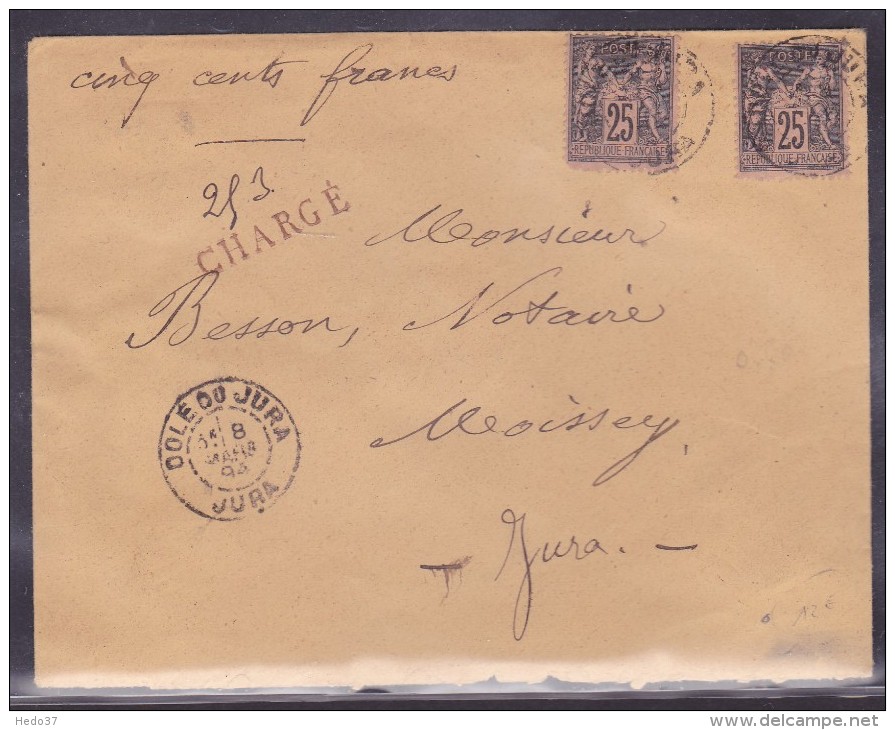 cinq cents francs
POSTES
25
REPUBLIQUE FRANÇAISE
POSTES
25
REPUBLIQUE FRANÇAISE
JURA
253
CHARGÉ
Monsieur
Besson, Notaire
Moissey,
- Jura. -
DOLE DU JURA
8
MARS
94
JURA
12 €
Hedo37
www.delcampe.net